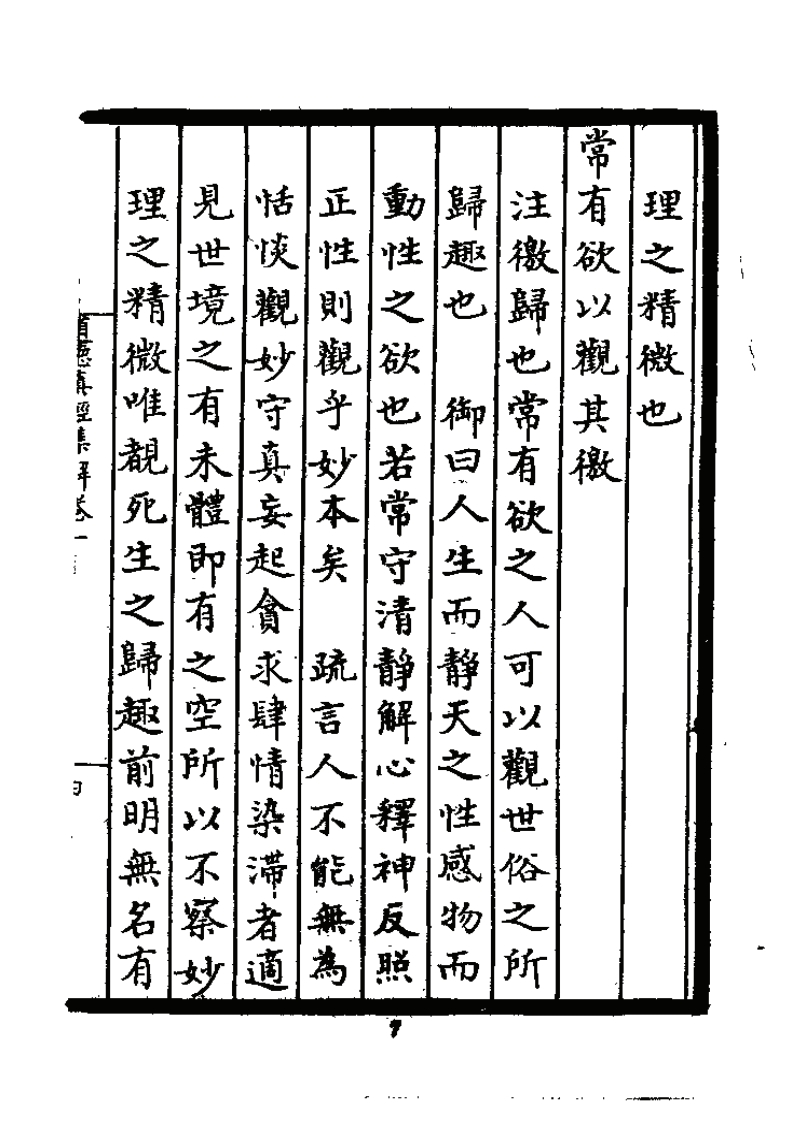 理之精微也
常有欲以觀其徼
注徼歸也常有欲之人可以觀世俗之所
歸趣也　御曰人生而靜天之性感物而
動性之欲也若常守清靜解心釋神反照
正性則觀乎妙本矣　疏言人不能無為
恬惔觀妙守真妄起貪求肆情染滯者適
見世境之有未體即有之空所以不察妙
理之精微唯覩死生之歸趣前明無名有
道德真經集解卷一